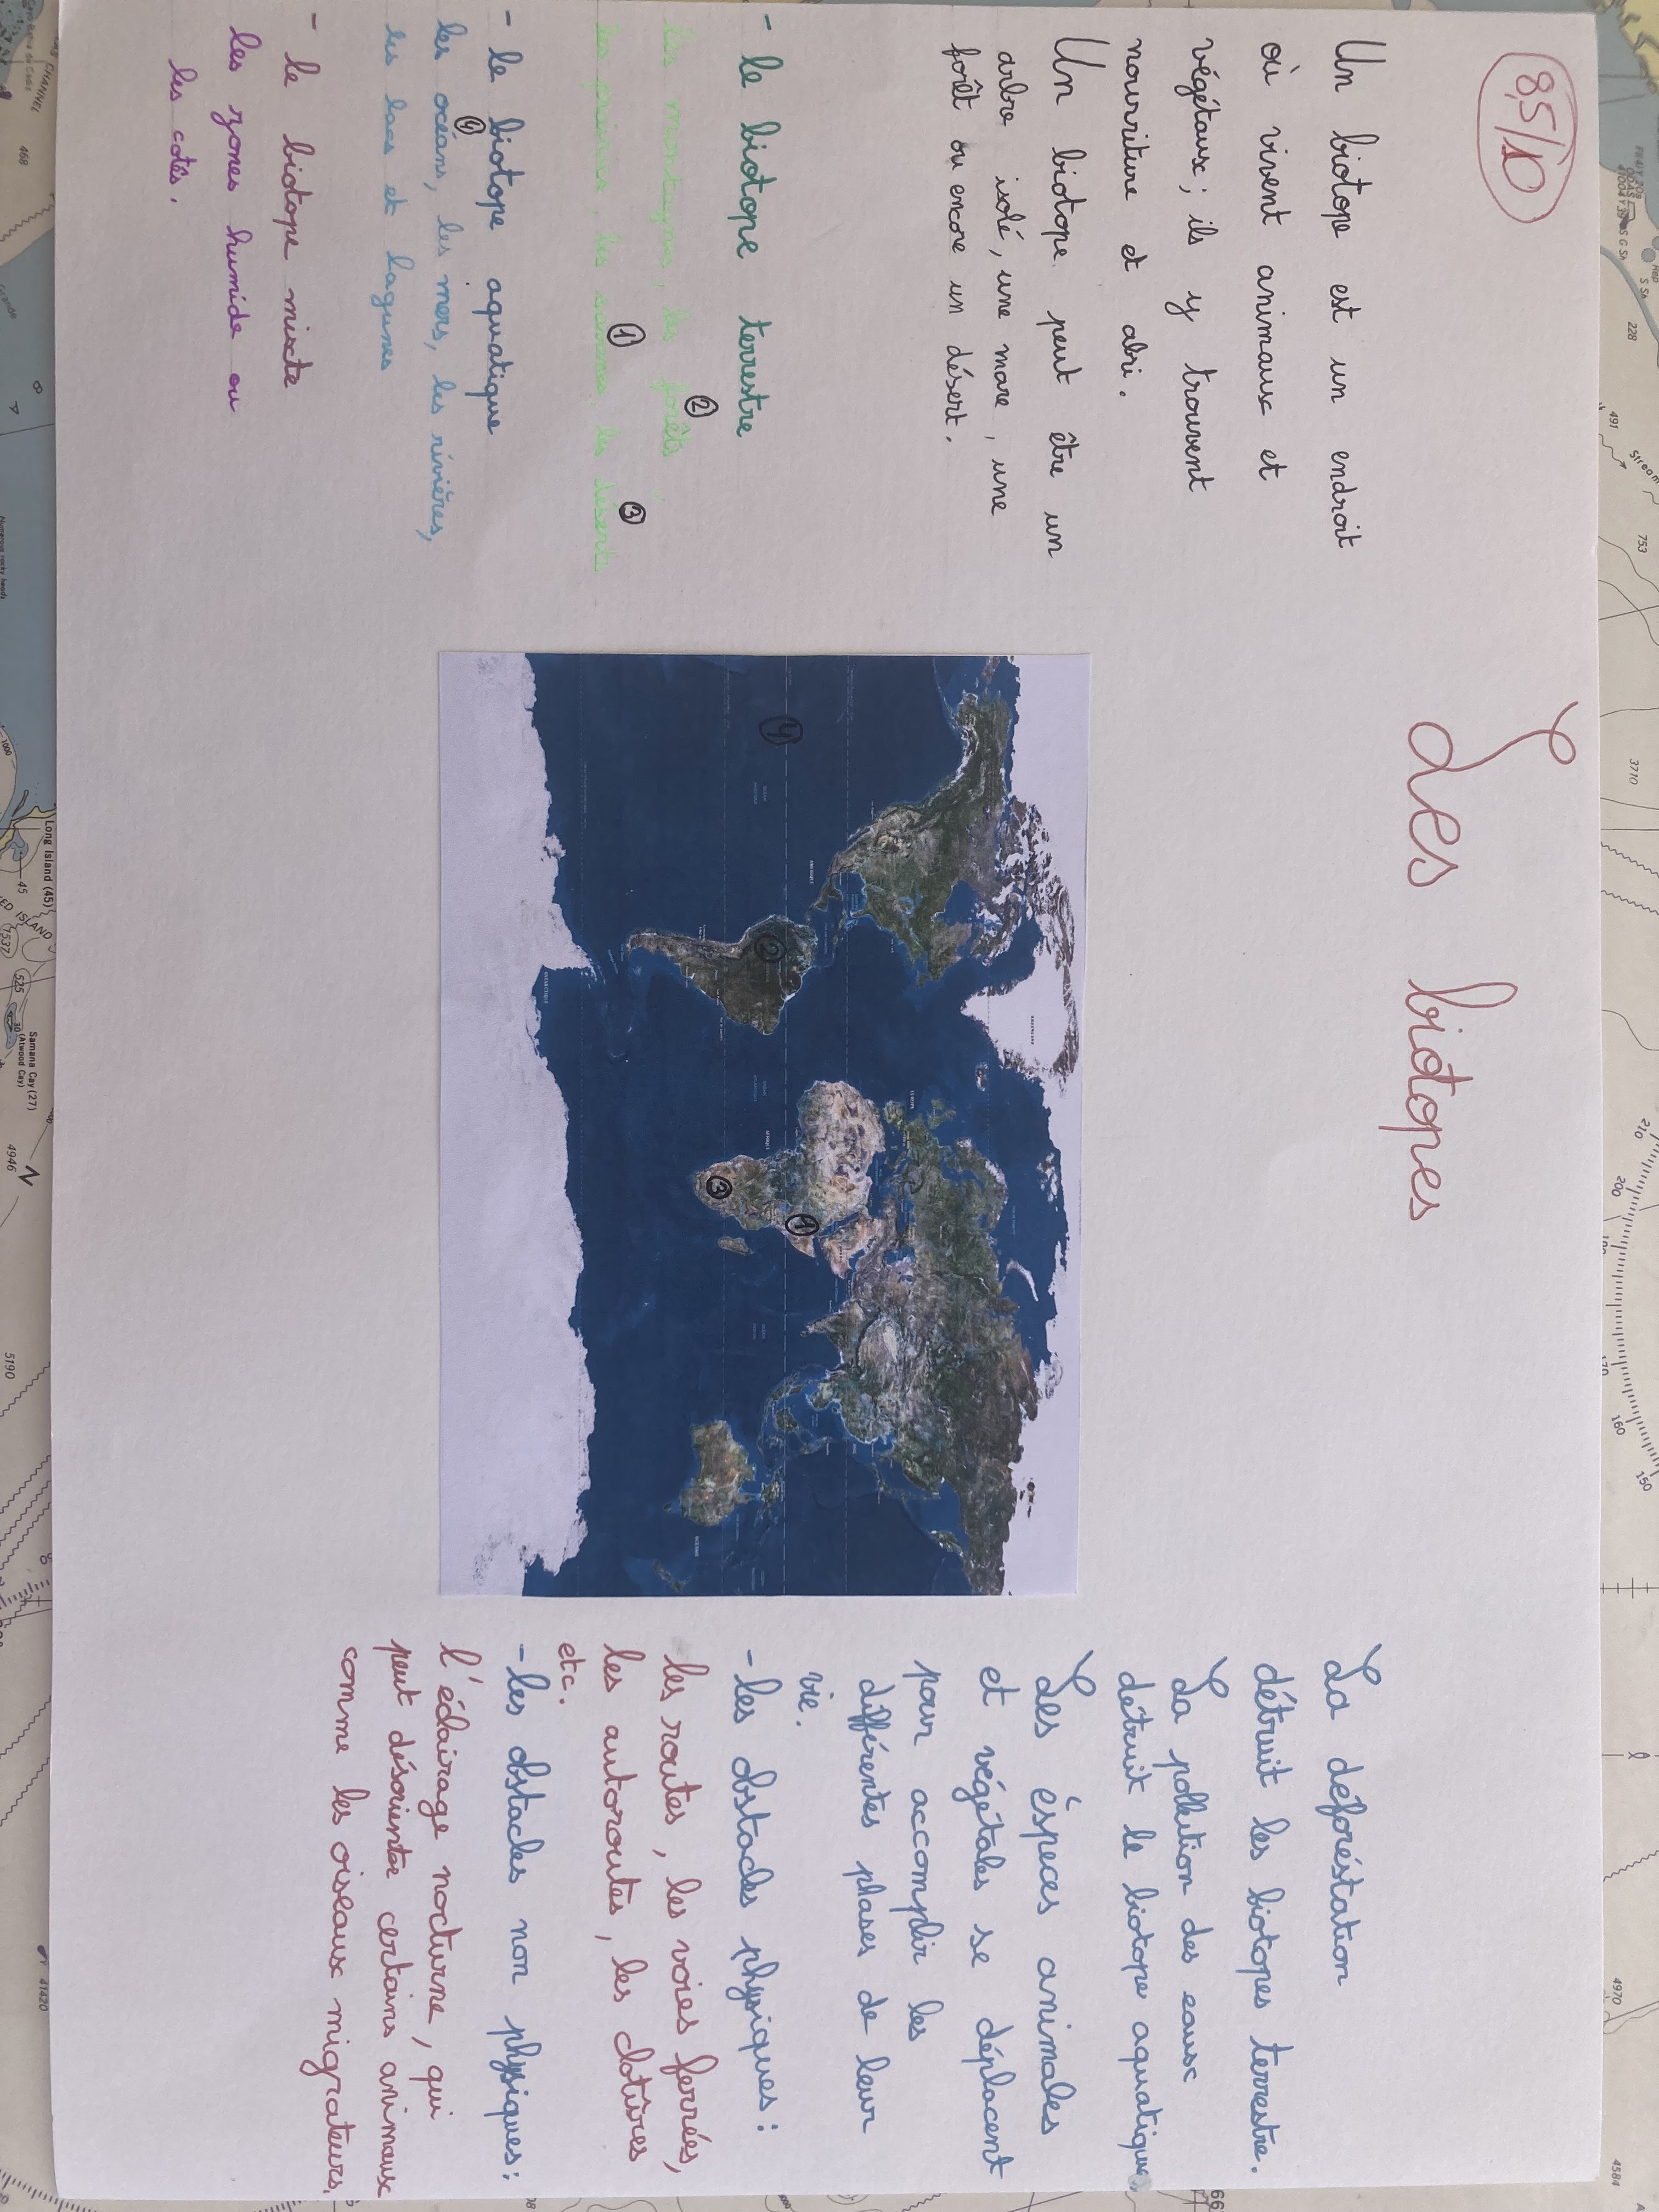 8,5/10
Les biotopes
Un biotope est un endroit
où vivent animaux et
végétaux ; ils y trouvent
nourriture et abri.
Un biotope peut être un
arbre isolé, une mare, une
forêt ou encore un désert.
- le biotope terrestre
les montagnes, les forêts
②
les prairies, les savanes, les déserts
① ③
- le biotope aquatique
les océans, les mers, les rivières,
④
les lacs et lagunes
- le biotope mixte
les zones humide ou
les cotés.
④
②
③
①
La déforéstation
détruit les biotopes terrestre.
La pollution des eaux
détruit le biotope aquatique.
Les éspèces animales
et végétales se déplacent
pour accomplir les
différentes phases de leur
vie.
- les obstacles physiques :
les routes, les voies ferrées,
les autoroutes, les clotûres
etc.
- les obstacles non physiques :
l'éclairage nocturne, qui
peut désorienter certains animaux
comme les oiseaux migrateurs.
468
228
491
753
3710
Long Island (45)
45
1537
525
Samana Cay (27)
4946
N
5190
210
200
170
160
150
4970
41420
4584